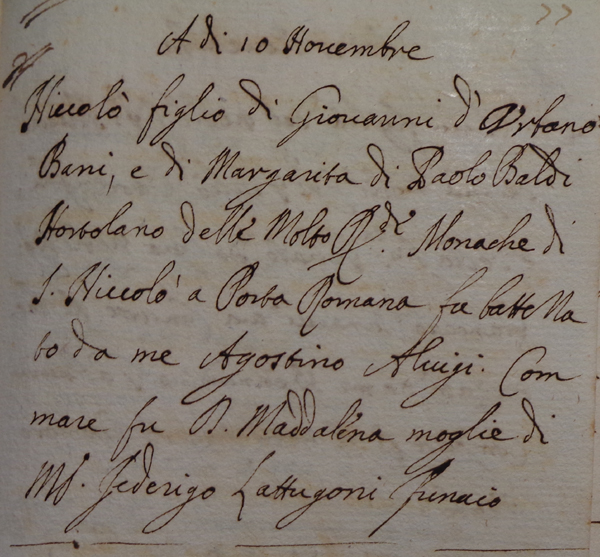 77
A dì 10 Novembre
Niccolò figlio di Giovanni d'Urbano
Bani, e di Margarita di Paolo Baldi
Hortolano delle Molto R.de Monache di
S. Niccolò a Porta Romana fu battezza
to da me Agostino Aluigi. Com
mare fu D. Maddalena moglie di
Federigo Lattugoni Funaio